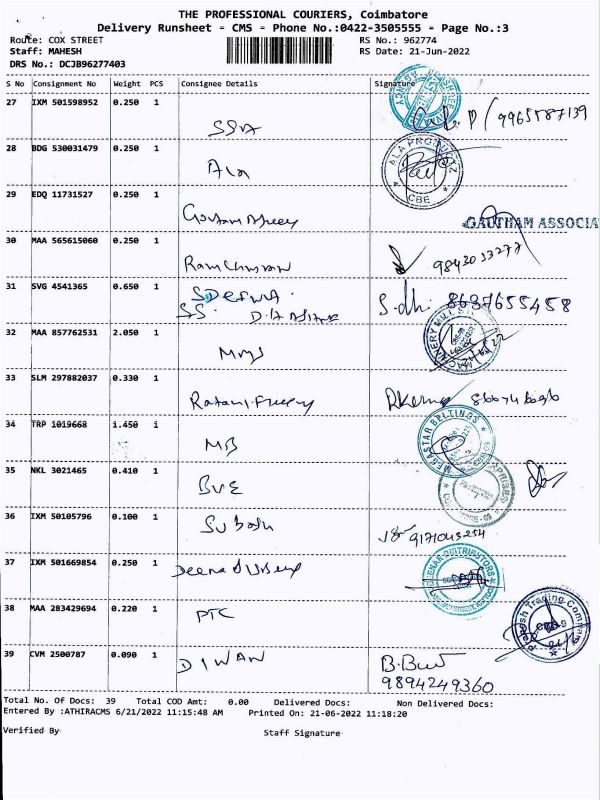 THE PROFESSIONAL COURIERS, Coimbatore
Delivery Runsheet - CMS - Phone No.:0422-3505555 - Page No.:3
Route: COX STREET
RS No.: 962774
Staff: MAHESH
RS Date: 21-Jun-2022
DRS No.: DCJB96277403
S No Consignment No Weight PCS Consignee Details Signature
27 IXM 501598952 0.250 1
SSVA
9965587139
28 BDG 530031479 0.250 1
Ala
ALA PRODUCTZ
CBE
29 EDQ 11731527 0.250 1
GAUTHAM ASSOCIA
30 MAA 565615060 0.250 1
9843033277
31 SVG 4541365 0.650 1
S.dhi. 8637655458
SS.
32 MAA 857762531 2.050 1
MMS
33 SLM 297882037 0.330 1
34 TRP 1019668 1.450 1
MB
MEGASTAR BELTINGS
35 NKL 3021465 0.410 1
BVE
36 IXM 50105796 0.100 1
Subash
9171043254
37 IXM 501669854 0.250 1
Deena
DEENAR DISTRIBUTORS
38 MAA 283429694 0.220 1
PTC
Trading Company
39 CVM 2500787 0.090 1
DIWAN
9894249360
Total No. Of Docs: 39 Total COD Amt: 0.00 Delivered Docs: Non Delivered Docs:
Entered By :ATHIRACMS 6/21/2022 11:15:48 AM Printed On: 21-06-2022 11:18:20
Verified By
Staff Signature